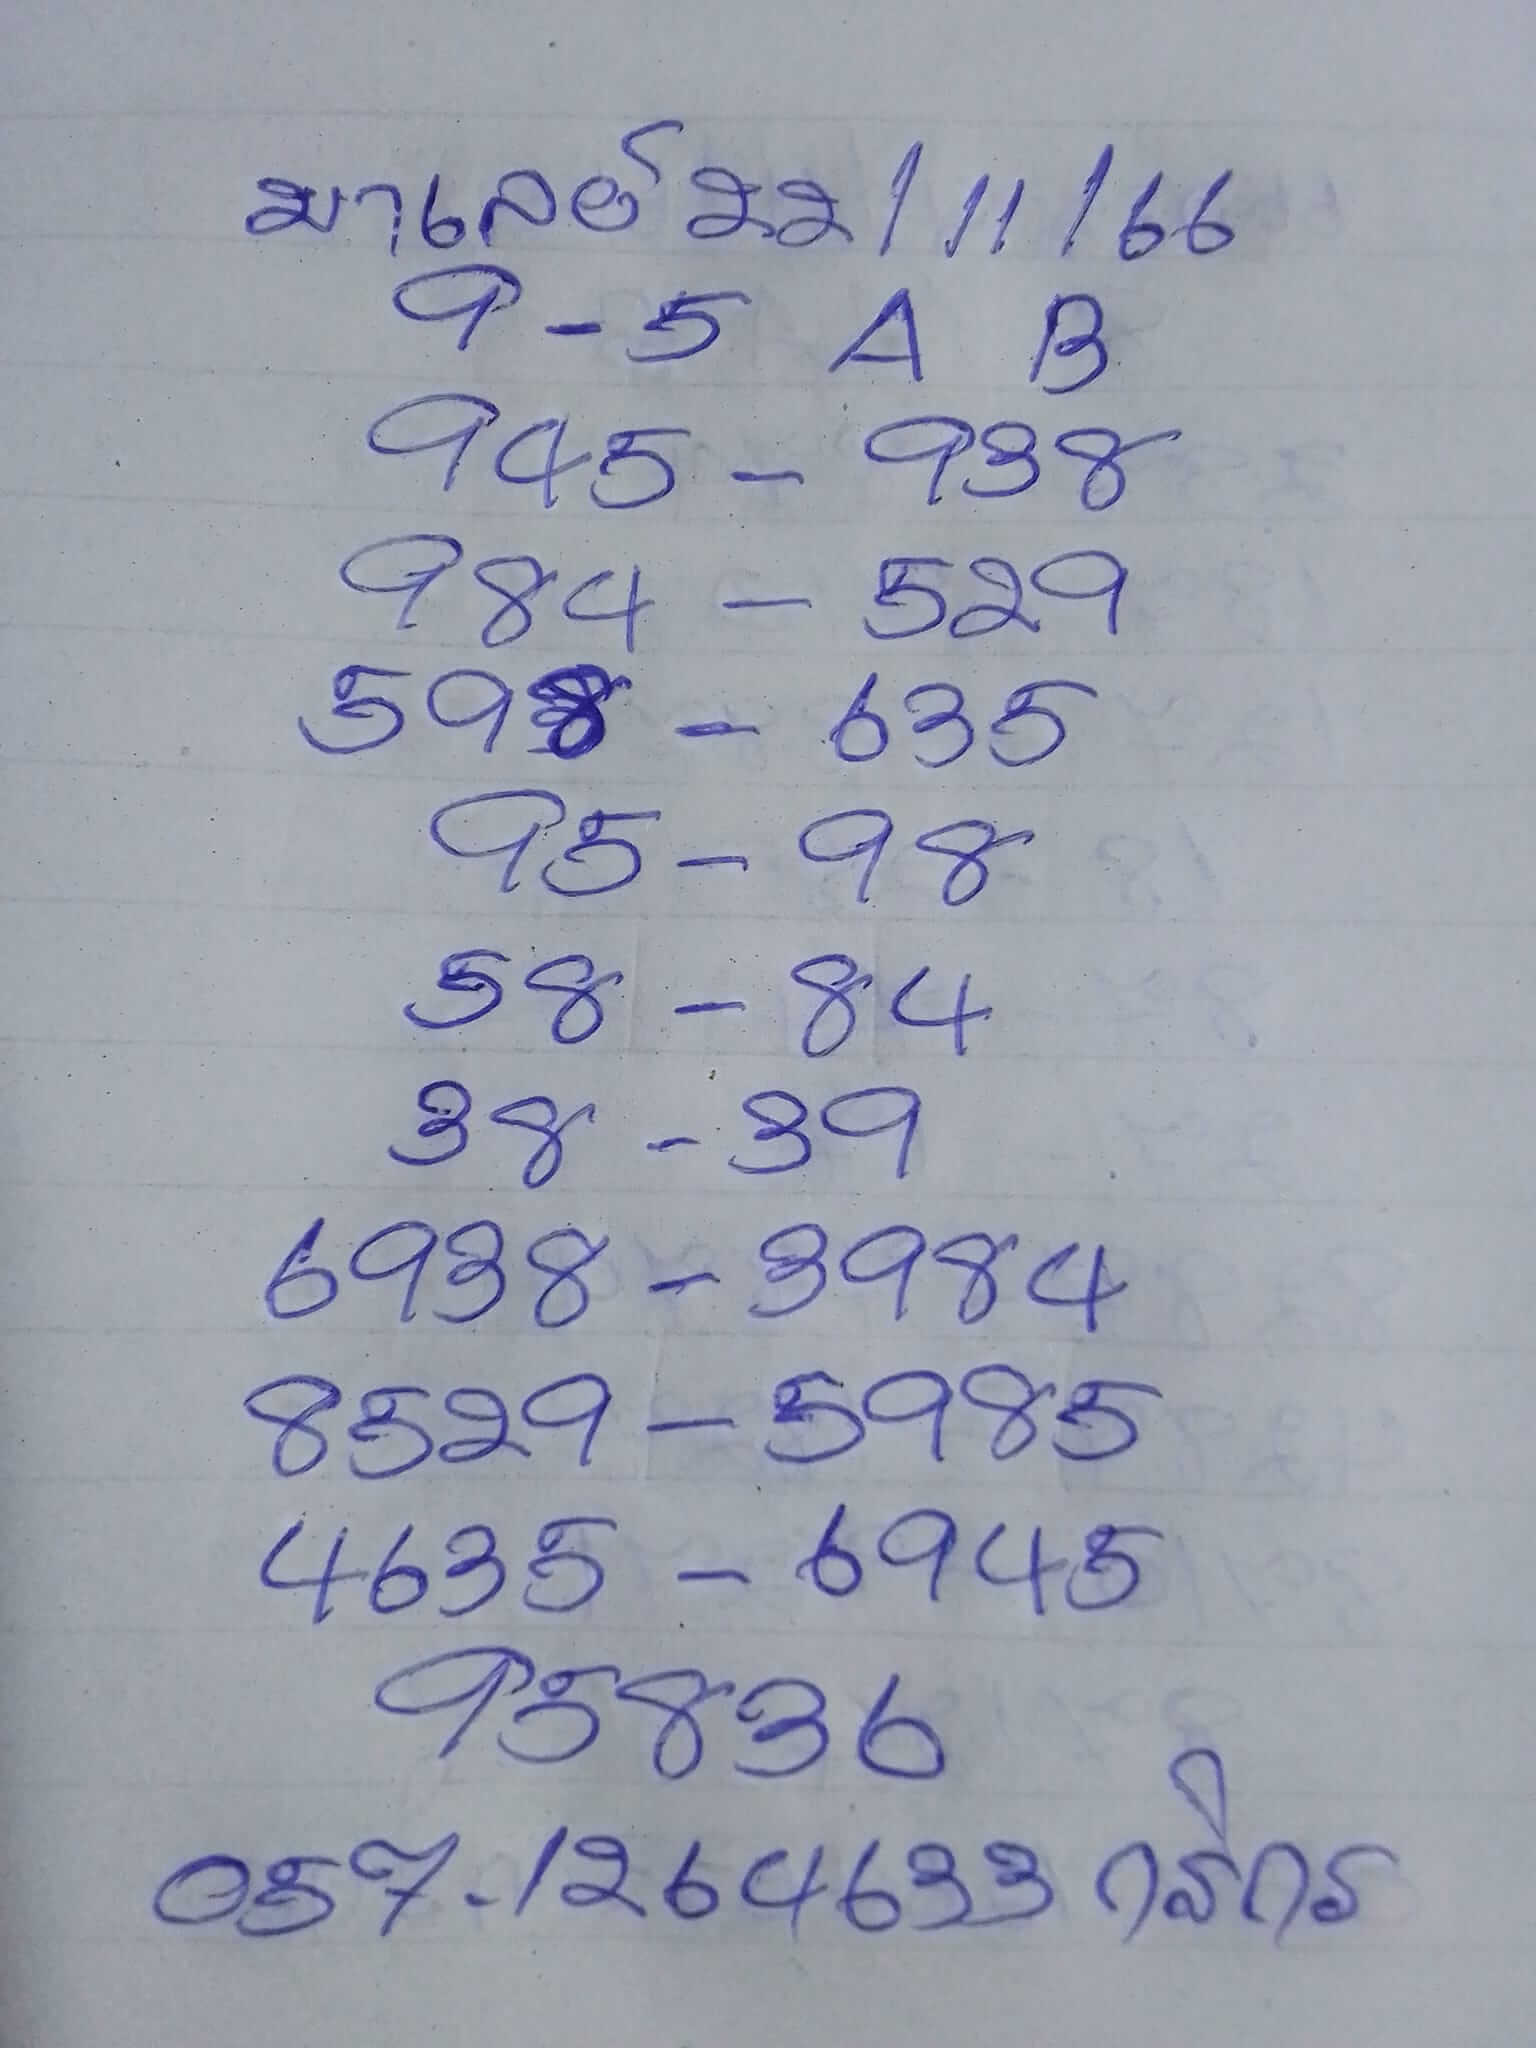 มาเลย์ 22/11/66
9-5 A B
945-938
984-529
598-635
95-98
58-84
38-39
6938-3984
8529-5985
4635-6945
95836
057-1264633 กสิกร